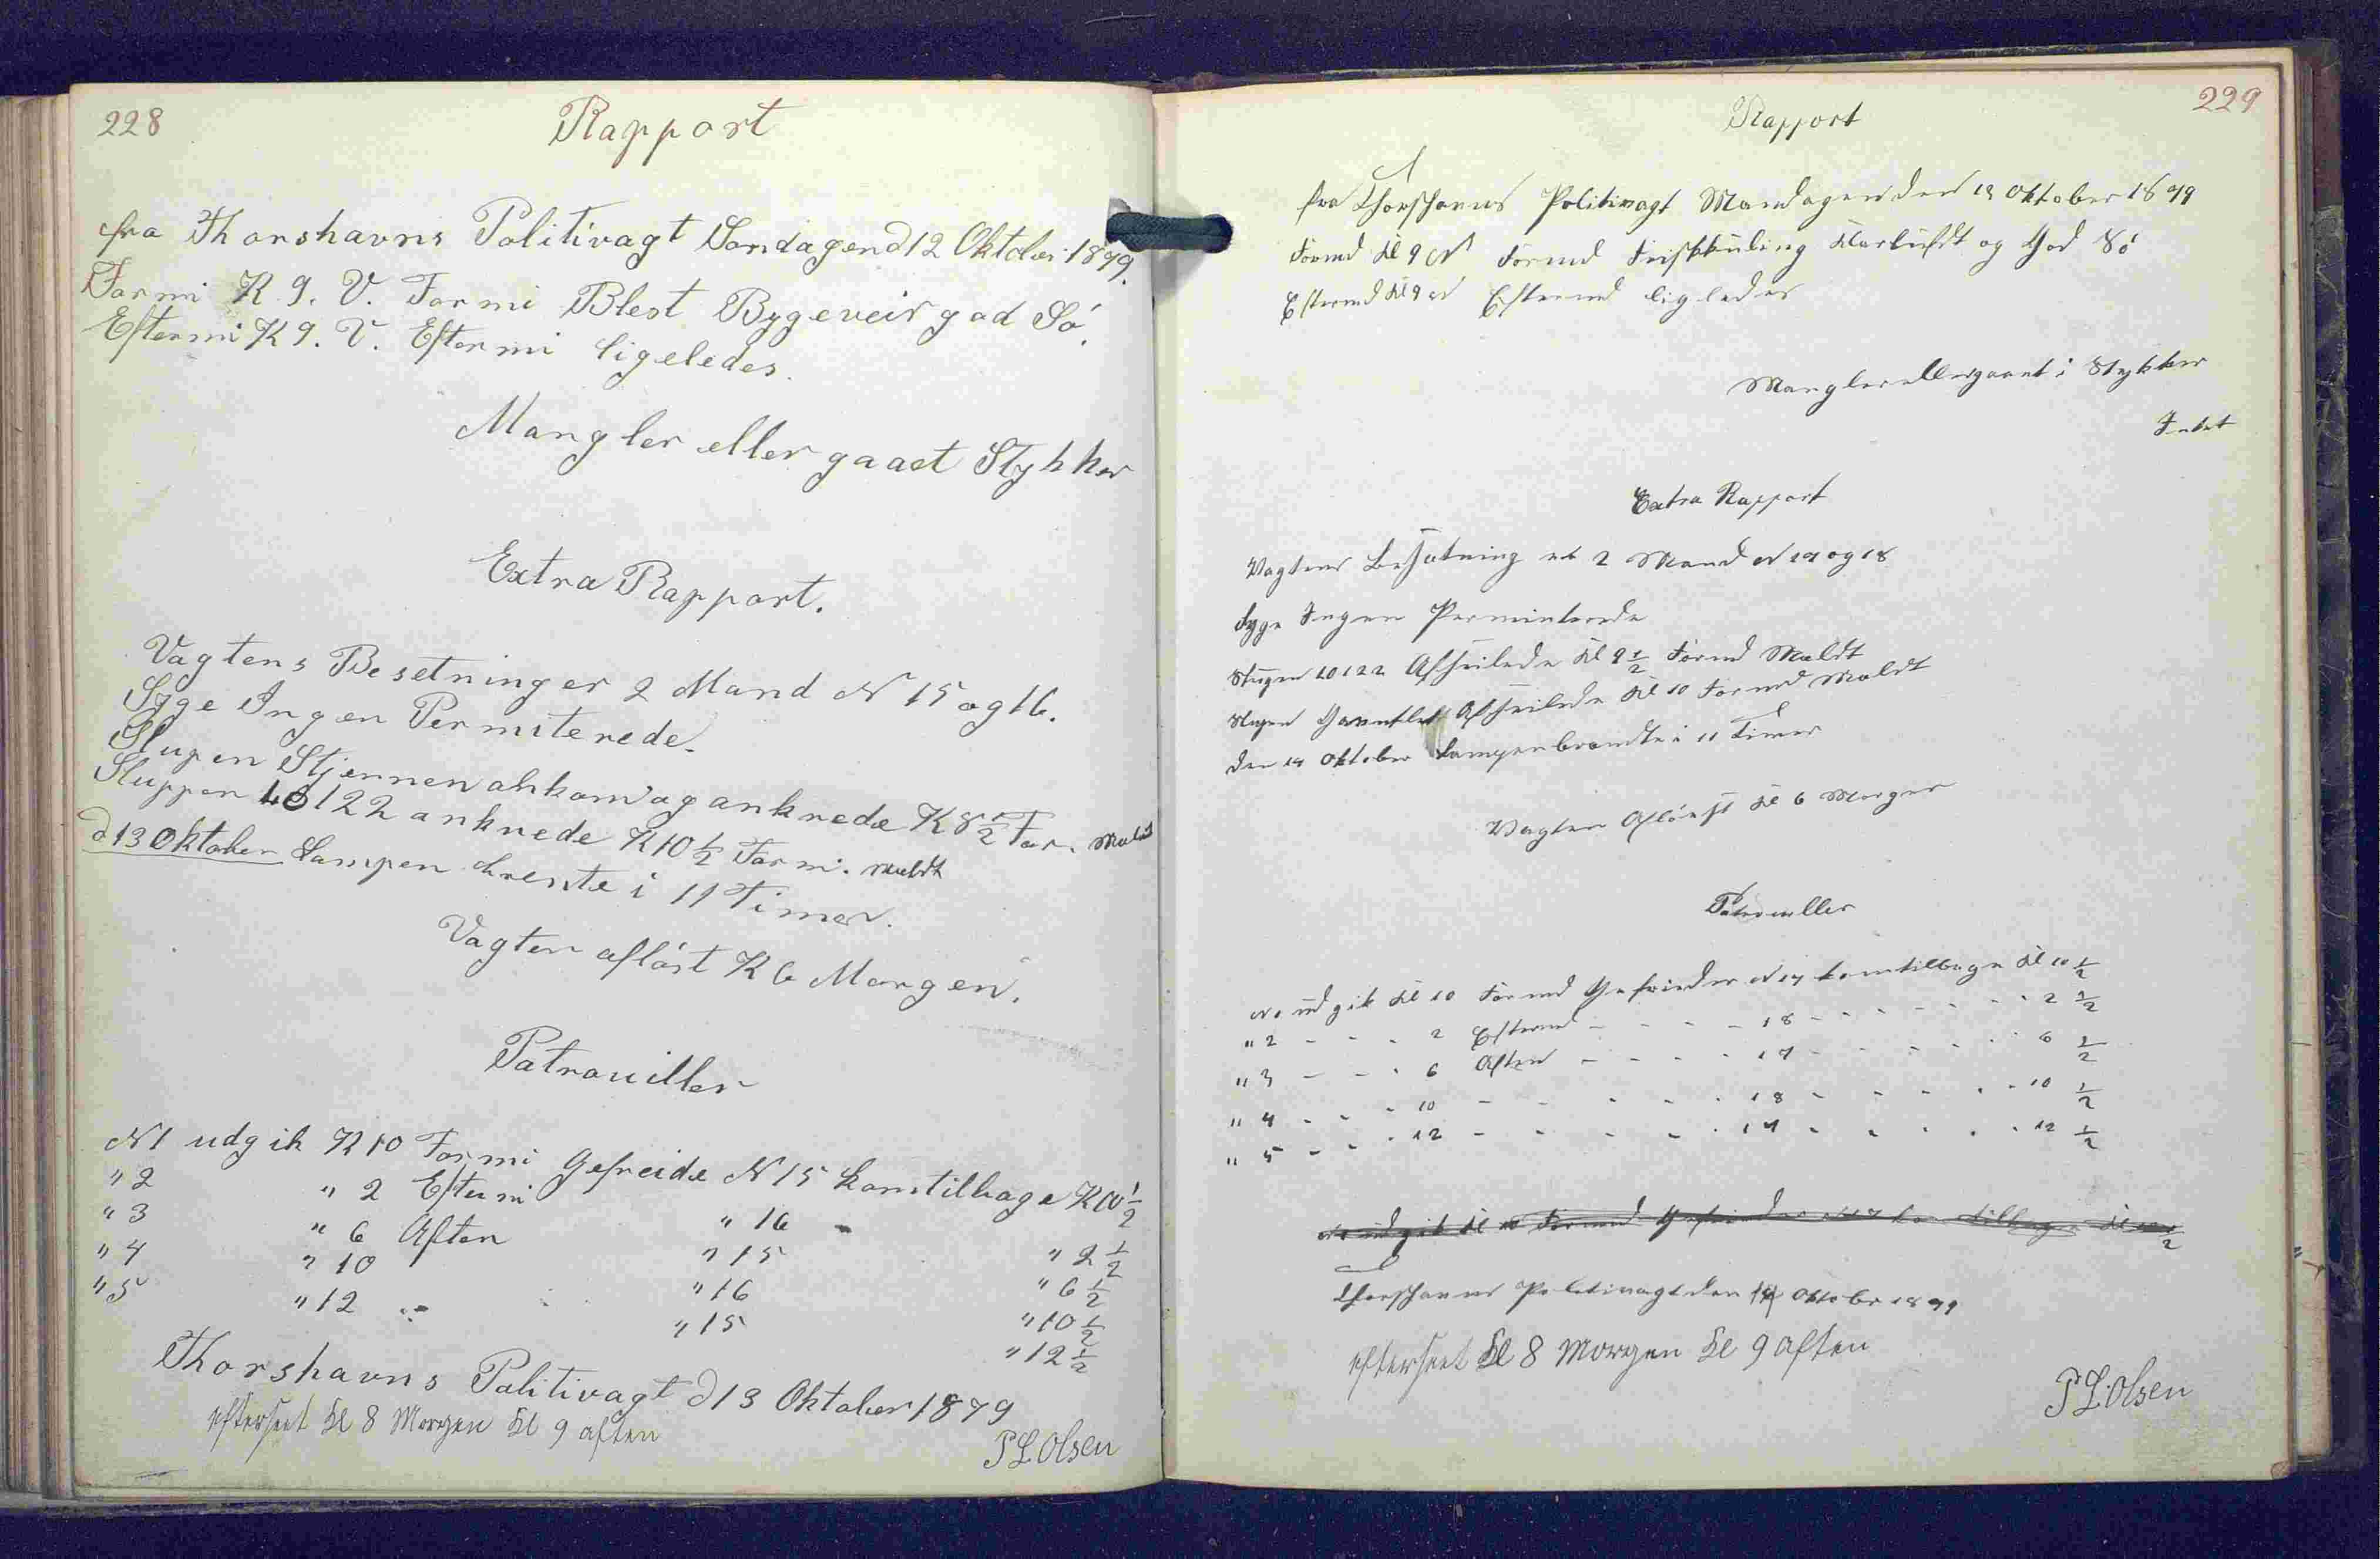 228
Rapport
fra Thorshavns Politivagt Søndagen d 12 Oktober 1879.
Formi K 9. V. Formi Blest Bygeveir god Sø.
Eftermi K 9. V. Eftermi ligeledes.
Mangler eller gaaet Stykker
Extra Rapport.
Vagtens Besetning er 2 Mand N 15 og 16.
Syge Ingen Permiterede.
Slupen Stjernen ankom og anknede K 8 1/2 For. Meldt
Sluppen 10122 anknede K 10 1/2 Formi. Meldt
d 13 Oktober Lampen brente i 11 Timer.
Vagten afløst K 6 Morgen.
Patrouiller
N 1 udgik K 10 Formi Gefreide N 15 kom tilbage K 10 1/2
" 2 " 2 Eftermi " 16 - " 2 1/2
" 3 " 6 Aften " 15 " 6 1/2
" 4 " 10 " 16 " 10 1/2
" 5 " 12 " 15 " 12 1/2
Thorshavns Politivagt d 13 Oktober 1879
efterseet Kl 8 Morgen Kl 9 aften
P L Olsen
229
Rapport
fra Thorshavns Politivagt Mandagen den 13 Oktober 1879
Formd Kl 9 N Formd Friskkuling Klarluft og God Sø
Eftermd Kl 9 N Eftermd ligeledes
Mangler eller gaaet i Stykker
Intet
Extra Rapport
Vagtens Besætning er 2 Mand N 17 og 18
Syge Ingen Permiterede
Slupen 10122 Afseilede Kl 9 1/2 Formd Meldt
Slupen Gauntlet Afseilede Kl 10 Formd Meldt
den 14 Oktober Lampen brændte i 11 Timer
Vagten Afløst Kl 6 Morgen
Patrouiller
N 1 udgik Kl 10 Formd Gefreider N 17 kom tilbage Kl 10 1/2
" 2 - - - 2 Eftermd - - - - 18 - - - - - - 2 1/2
" 3 - - - 6 Aften - - - - 17 - - - - - - 6 1/2
" 4 - - - 10 - - - - - 18 - - - - - 10 1/2
" 5 - - - 12 - - - - - 17 - - - - - 12 1/2
N 1 udgik Kl 10 Formd Gefreider N 17 kom tilbage Kl 10 1/2
Thorshavns Politivagt den 14 Oktober 1879
efterseet Kl 8 Morgen Kl 9 Aften
P L Olsen